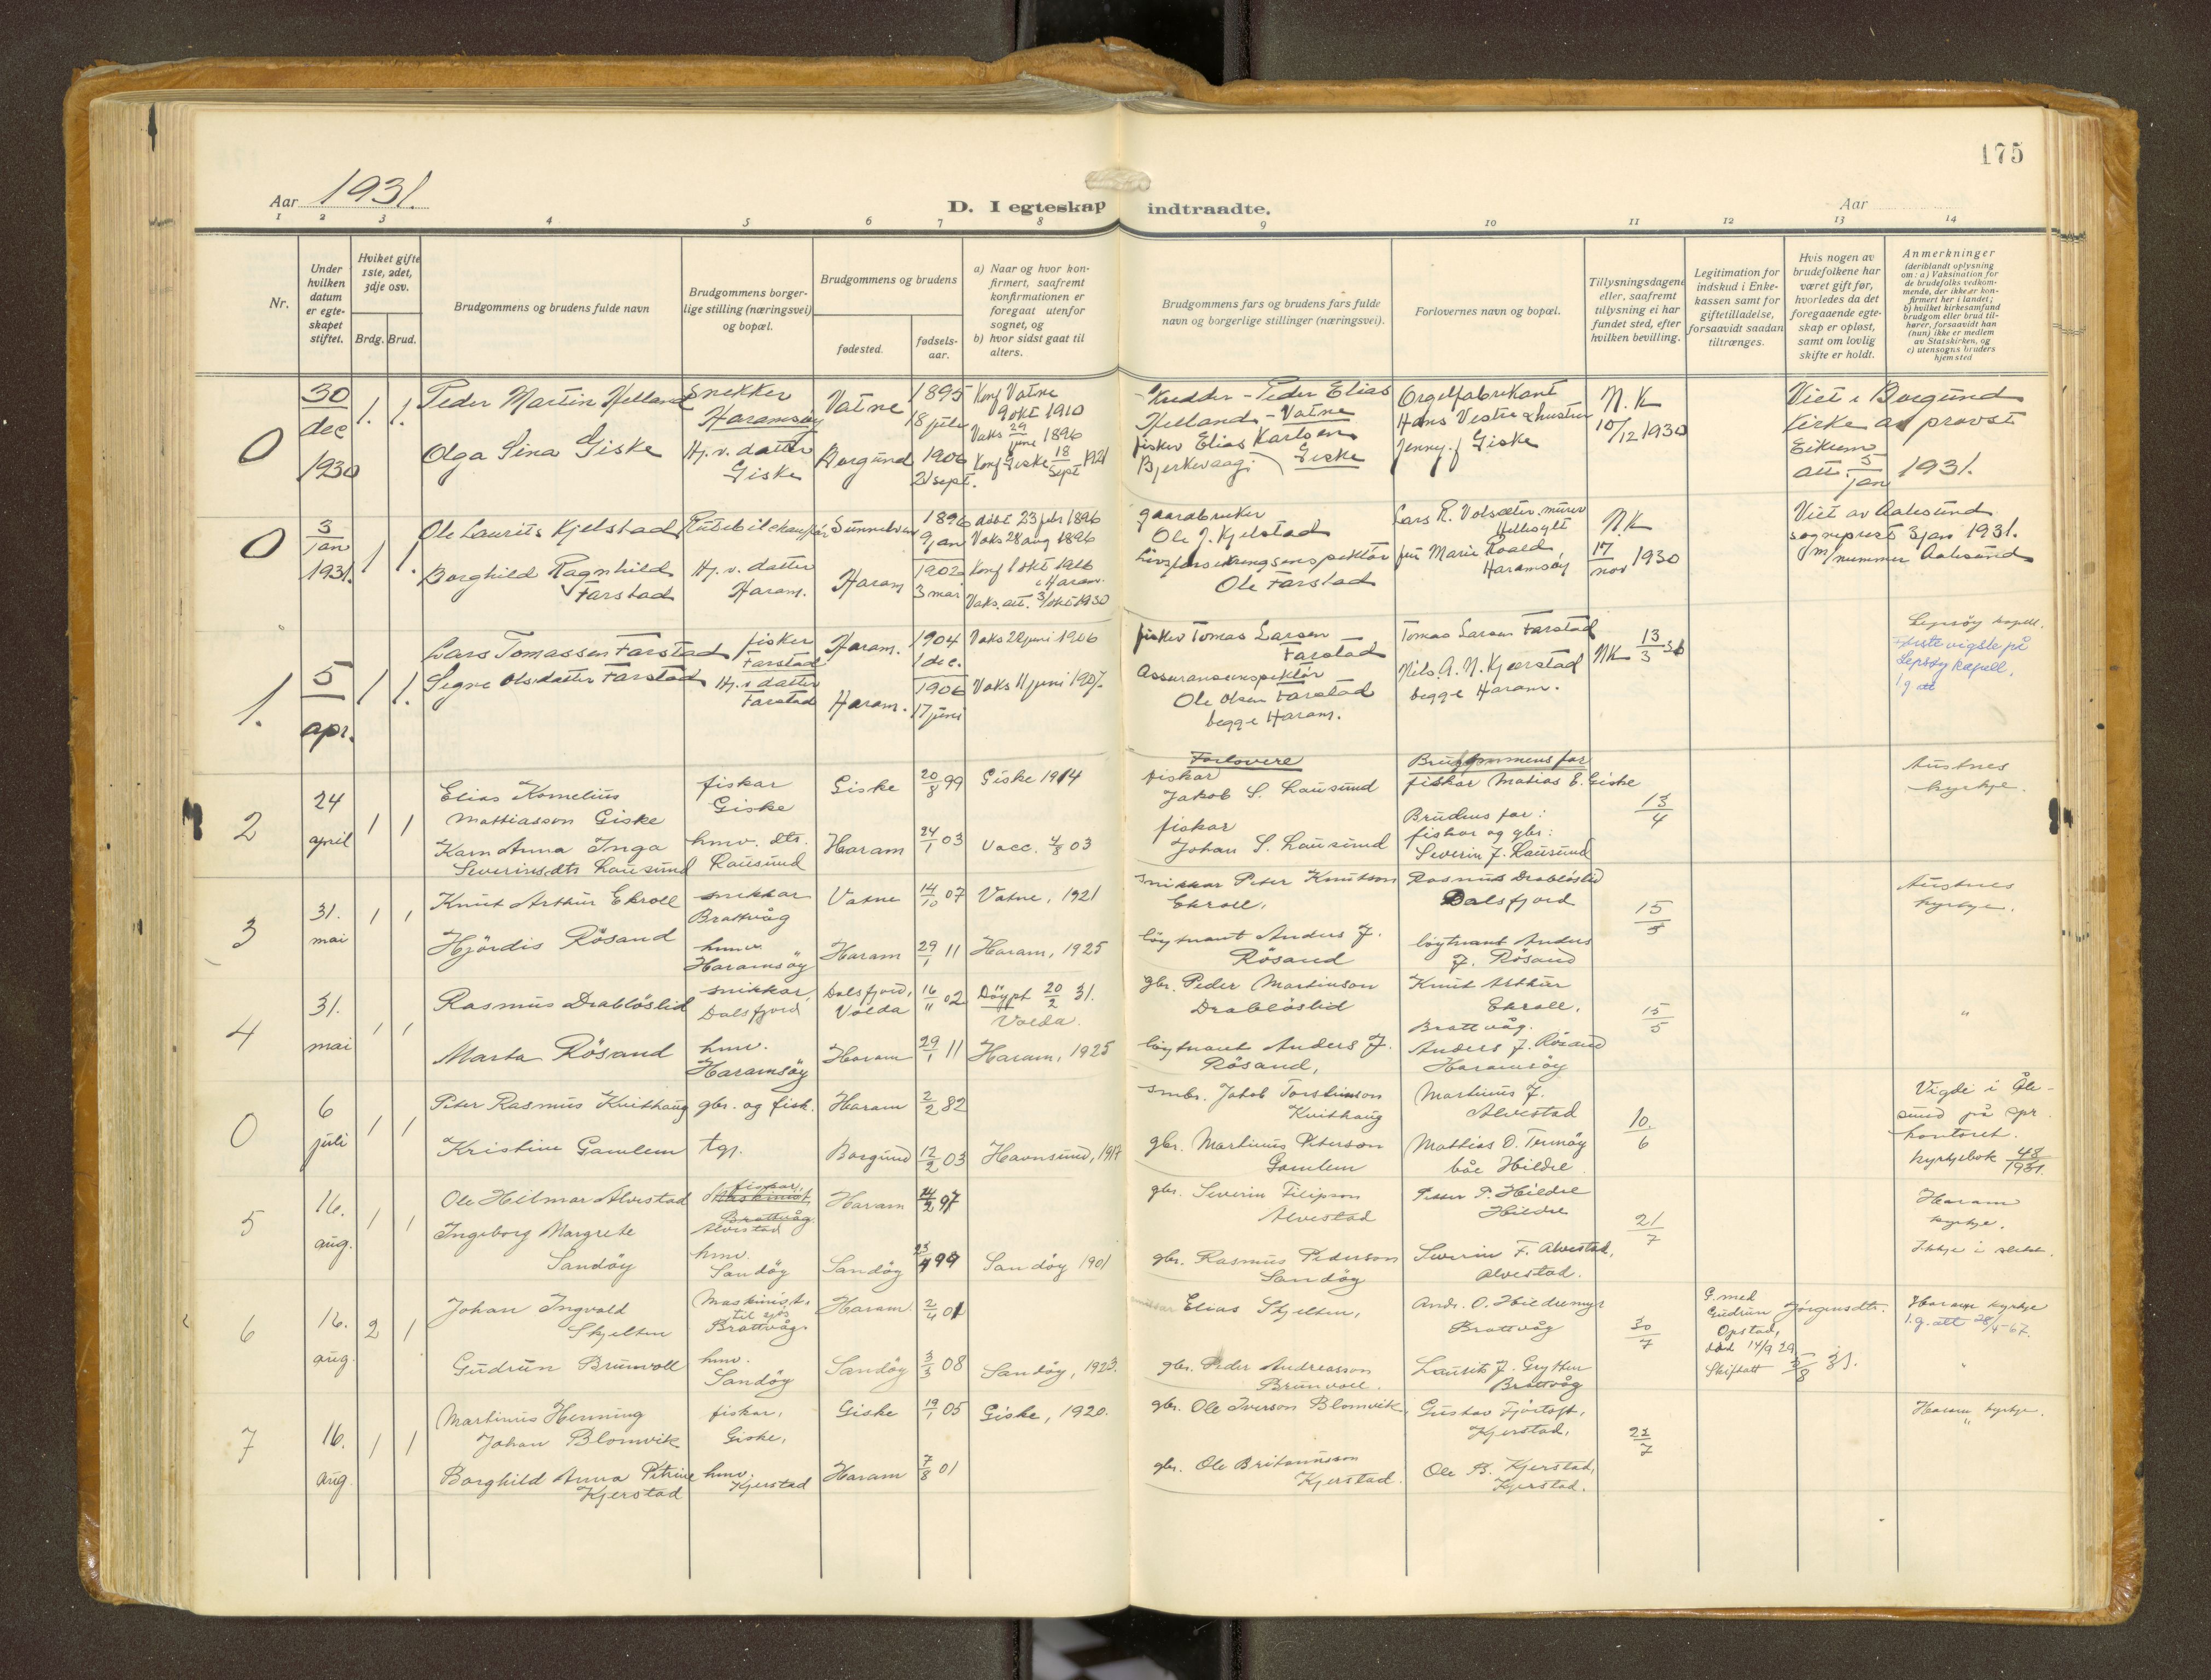 175
Aar 1931.
D. I egteskap indtraadte.
Aar
1 2 3 4 5 6 7 8 9 10 11 12 13 14
Nr.
Under
hvilken
datum
er egte-
skapet
stiftet.
Hviket gifte
1ste, 2det,
3dje osv.
Brdg. Brud.
Brudgommens og brudens fulde navn
Brudgommens borger-
lige stilling (næringsvei)
og bopæl.
Brudgommens og brudens
fødested.
fødsels-
aar.
a) Naar og hvor kon-
firmert, saafremt
konfirmationen er
foregaat utenfor
sognet, og
b) hvor sidst gaat til
alters.
Brudgommens fars og brudens fars fulde
navn og borgerlige stillinger (næringsvei).
Forlovernes navn og bopæl.
Tillysningsdagene
eller, saafremt
tillysning ei har
fundet sted, efter
hvilken bevilling.
Legitimation for
indskud i Enke-
kassen samt for
giftetilladelse,
forsaavidt saadan
tiltrænges.
Hvis nogen av
brudefolkene har
været gift før,
hvorledes da det
foregaaende egte-
skap er opløst,
samt om lovlig
skifte er holdt.
Anmerkninger
(deriblandt oplysning
om: a) Vaksination for
de brudefolks vedkom-
mende, der ikke er kon-
firmert her i landet;
b) hvilket kirkesamfund
brudgom eller brud til-
hører, forsaavidt han
(hun) ikke er medlem
av Statskirken, og
c) utensogns bruders
hjemsted
0
30
dec
1930
1. 1.
Peder Martin Helland
Olga Sina Giske
Snekker
Haramsøy
Hj. v. datter
Giske
Vatne
Borgund
1895
18 juli
1906
21 sept.
Konf Vatne
9 okt 1910
Vaks 29/juni 1896
Konf Giske 18/sept 1921
Peder Elias
Helland - Vatne
fisker Elias Karlsen
Bjerkevaag; Giske
Orgelfabrikant
Hans Vestre & hustru
Jenny. f Giske
N.K
10/12 1930
Viet i Borgund
kirke av provst
Eikum
att. 5/jan 1931.
0
3
jan
1931.
1 1.
Ole Laurits Kjelstad
Borghild Ragnhild
Farstad
Rutebileskauffør
Hj. v. datter
Haram.
Sunnelven
Haram
1896
9 jan
1902
3 mar
døbt 23 feb 1896
Vaks 28 aug 1896
Konf 1 okt 1916
i Haram.
Vaks. att. 3/okt 1930
gaardbruker
Ole J. Kjelstad
Livsforsikringsinspektør
Ole Farstad
Lars R. Volsæter. murer
Hellesylt
fru Marie Roald,
Haramsøy
N.K
17
nov 1930
Viet av Aalesund
sogneprest 3 jan 1931.
m/nummer Aalesund
1.
5
apr.
1 1.
Lars Tomassen Farstad
Signe Olsdatter Farstad
fisker
Farstad
Hj. v. datter
Farstad
Haram.
Haram.
1904
1 dec.
1906
17 juni
Vaks 22 juni 1906
Vaks 11 juni 1907.
fisker Tomas Larsen
Farstad
Assuranseinspektør
Ole Olsen Farstad
begge Haram.
Tomas Larsen Farstad
Nils. A. N. Kjerstad
begge Haram.
NK 13/3 31
Lepsøy kapell.
Første vigsle på
Lepsøy kapell.
1 g att
2
24
april
1 1
Elias Kornelius
Mattiasson Giske
Karn Anna Inga
Severinsdtr Lausund
fiskar
Giske
hmv. dtr.
Lausund
Giske
Haram
20/8 99
24/1 03
Giske 1914
Vacc. 4/8 03
Forlovere
fiskar
Jakob S. Lausund
fiskar
Johan S. Lausund
Brudgommens far
fiskar Matias E. Giske
Brudens far:
fiskar og gbr:
Severin J. Lausund
13
4
Austnes
kyrkje.
3
31.
mai
1 1
Knut Arthur Ekroll
Hjördis Rösand
snikkar
Brattvåg
hmv.
Haramsöy
Vatne
Haram
14/10 07
29/1 11
Vatne, 1921
Haram, 1925
snikkar Peter Knutson
Ekroll,
löytnant Anders J.
Rösand
Rasmus Drablöslid
Dalsfjord
löytnant Anders
J. Rösand
15
5
Austnes
kyrkje.
4
31.
mai
1 1
Rasmus Drablöslid
Marta Rösand
snikkar
Dalsfjord
hmv.
Haramsöy
Dalsfjord,
Volda
Haram
16/11 02
29/1 11
Döypt 20/2 31.
Volda.
Haram, 1925
gbr. Peder Martinson
Drablöslid
löytnant Anders J.
Rösand,
Knut Arthur
Ekroll,
Brattvåg.
Anders J. Rösand
Haramsöy
15
5
"
0
6
juli
1 1
Peter Rasmus Kvithaug
Kristine Gamlem
gbr. og fisk.
tgj.
Haram
Borgund
2/2 82
12/2 03
Havnsund, 1917
smbr. Jakob Torsteinson
Kvithaug
gbr. Martinus Peterson
Gamlem
Martinus J.
Alvestad
Mattias O. Tennöy
båe Hildre
10.
6
Vigde i Åle-
sund på spr.
kontoret.
kyrkjebok 48/1931.
5
16.
aug.
1 1
Ole Hilmar Alvestad
Ingeborg Margrete
Sandöy
fiskar,
Maskinist,
Brattvåg
Alvestad
hmv.
Sandöy
Haram
Sandöy
14/2 97
Sandöy 1901
gbr. Severin Filipson
Alvestad
gbr. Rasmus Pederson
Sandöy
Peter P. Hildre
Hildre
Severin F. Alvestad,
Alvestad.
21
7
Haram
kyrkje.
Ikkje i slekt.
6
16.
aug.
2 1
Johan Ingvald
Skjelten
Gudrun Brunvoll
Maskinist,
til sjøs
Brattvåg.
hmv.
Sandöy
Haram.
Sandöy
2/4 01
3/3 08
Sandöy, 1923.
Elias Skjelten,
gbr. Peder Andreasson
Brunvoll.
Andr. O. Hildremyr
Brattvåg
Laurits J. Grytten
Brattvåg
30
7
G. med
Gudrun Jörgensdtr.
Opstad,
död 14/9 29
Skifteatt 5/8 31.
Haram kyrkje
1.g. att 28/4-67.
"
7
16.
aug.
1 1
Martinus Henning
Johan Blomvik
Borghild Anna Petrine
Kjerstad
fiskar,
Giske,
hmv.
Kjerstad
Giske
Haram
19/1 05
7/8 01
Giske, 1920.
gbr. Ole Iverson Blomvik,
gbr. Ole Britanusson
Kjerstad.
Gustav Fjörtoft,
Kjerstad,
Ole B. Kjerstad,
Kjerstad.
22
7
Haram kyrkje.
"